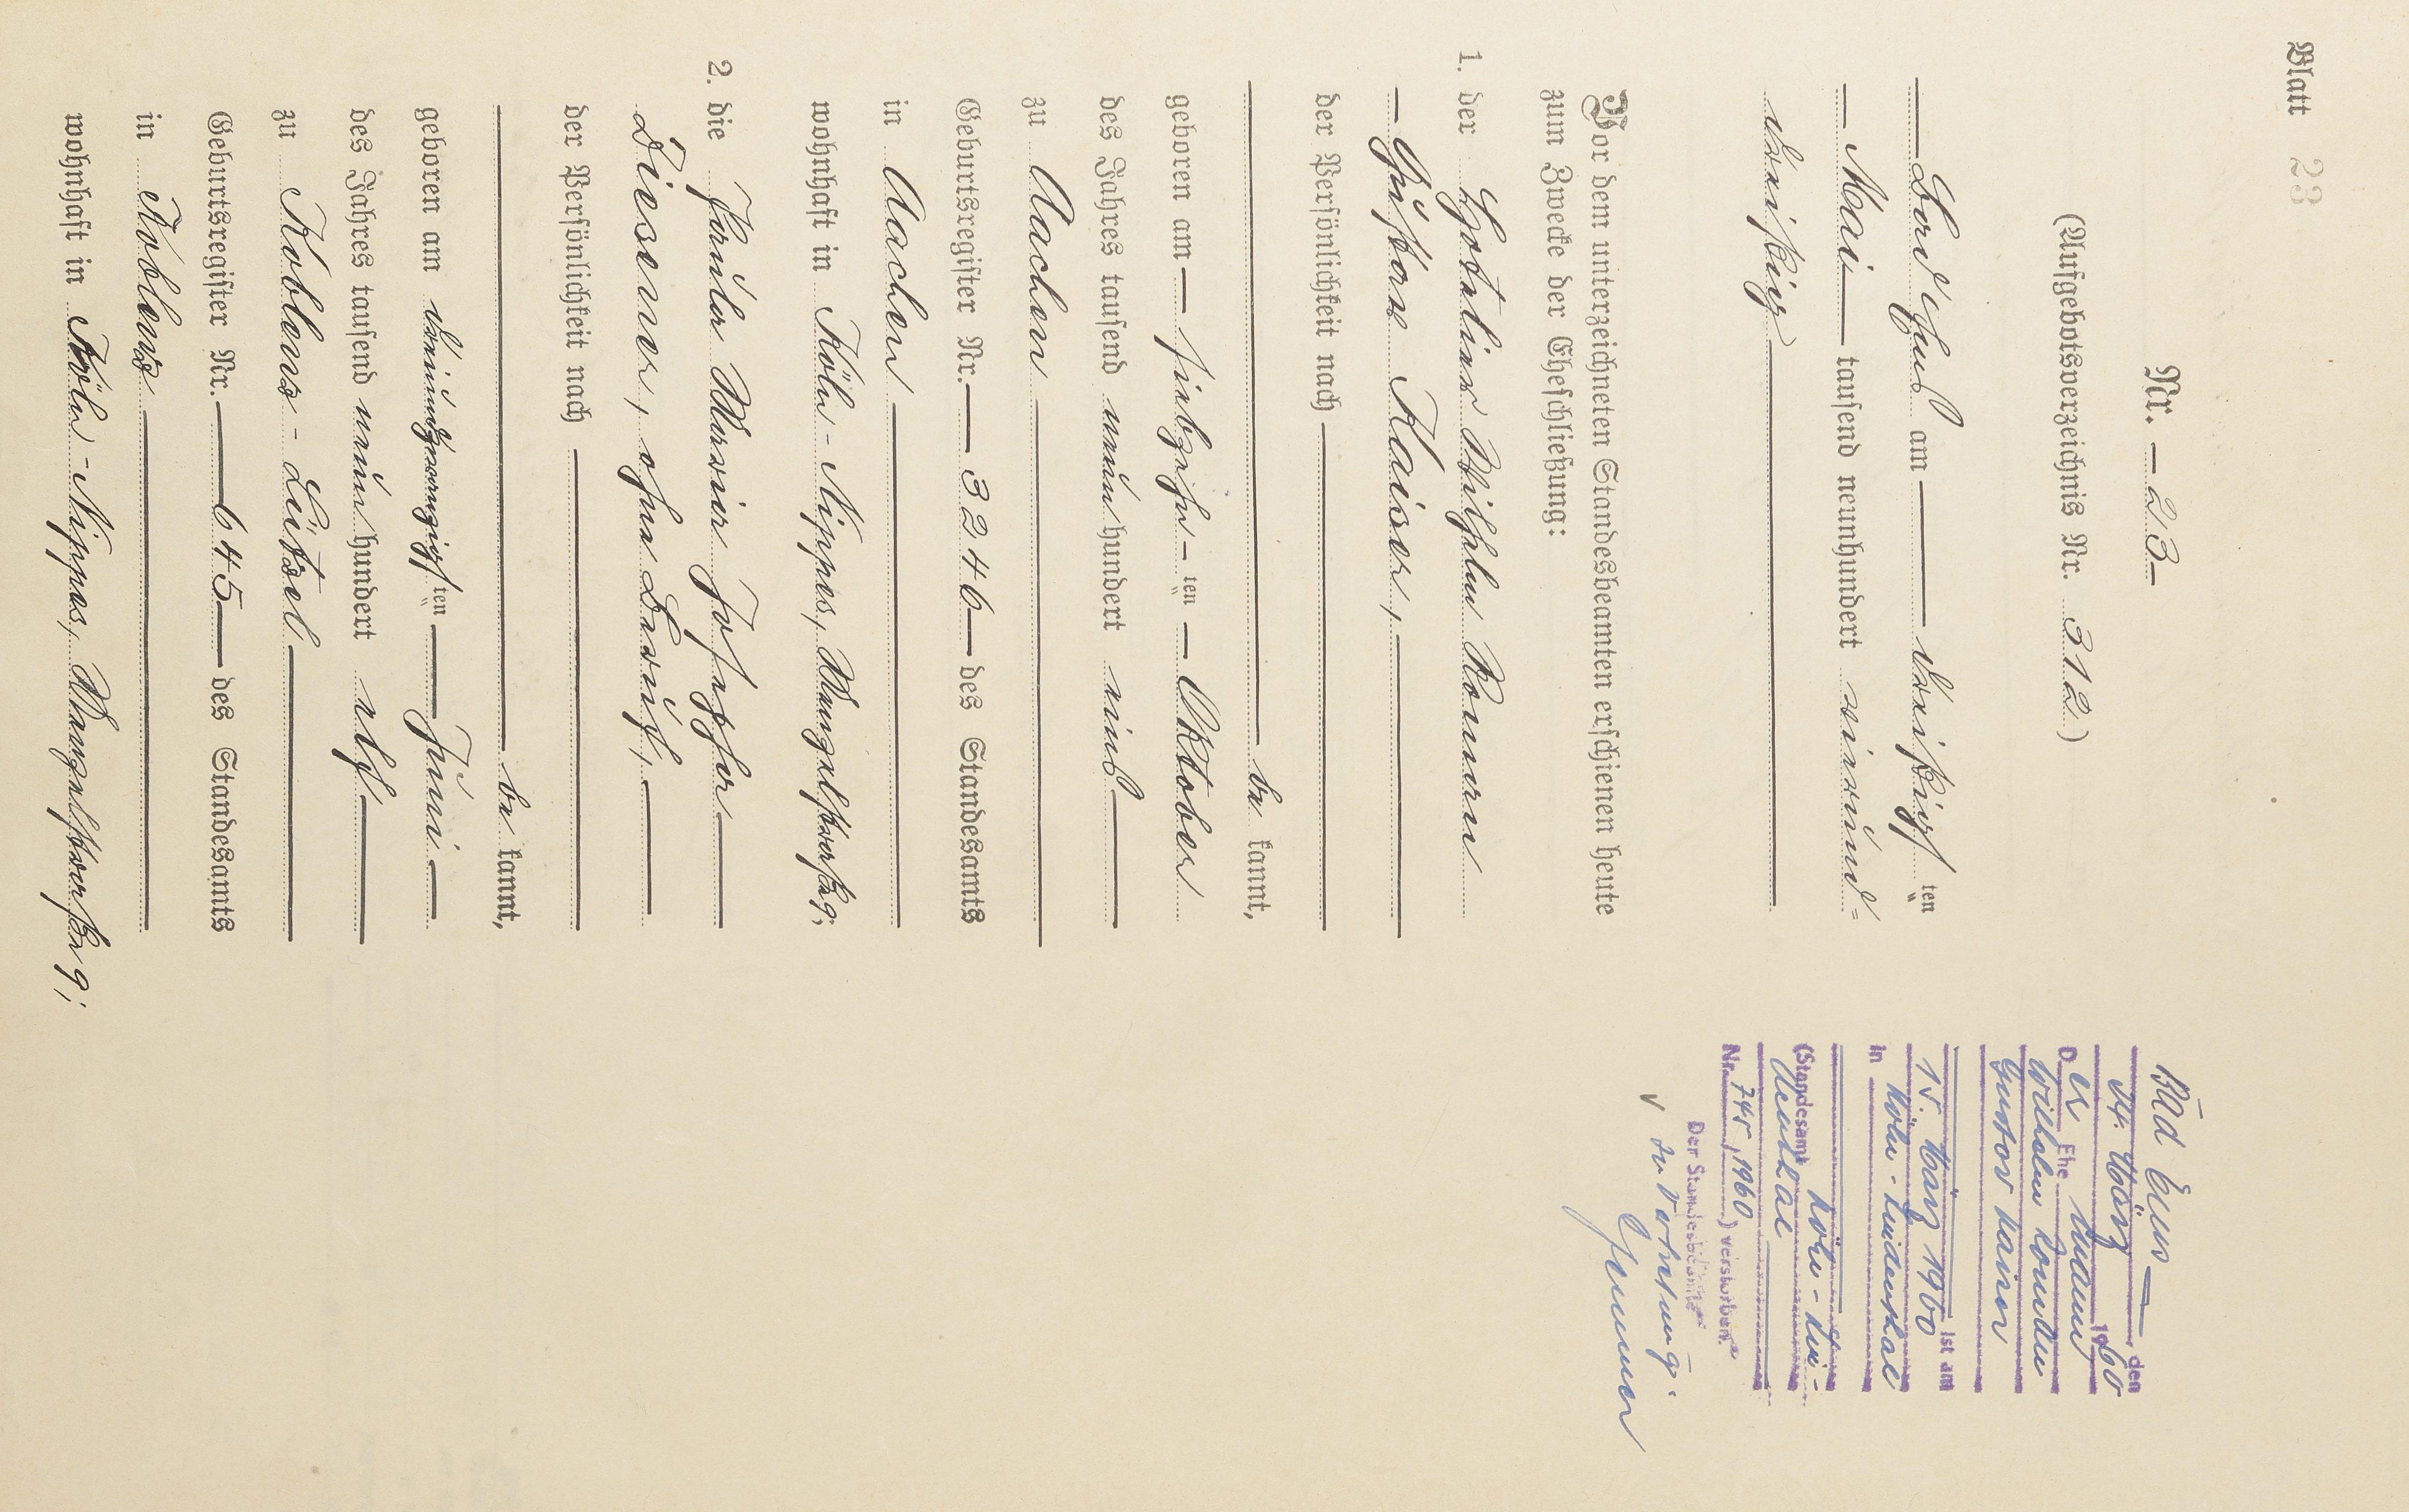 Blatt 23
Nr. 23
(Aufgebotsverzeichnis Nr. 312)
Bad Ems am dreißigsten
Mai tausend neunhundert vierund=
dreißig
Vor dem unterzeichneten Standesbeamten erschienen heute
zum Zwecke der Eheschließung:
1. der Hotelier Wilhelm Konrad
Gustav Kaiser,
der Persönlichkeit nach
be kannt,
geboren am siebzehn ten Oktober
des Jahres tausend neun hundert eins
zu Aachen
Geburtsregister Nr. 3246 des Standesamts
in Aachen
wohnhaft in Köln-Nippes, Wangelstraße 9;
2. die
Diesner, ohne Beruf,
der Persönlichkeit nach
be kannt,
geboren am dreiundzwanzigsten Juni
des Jahres tausend neun hundert elf
zu Koblenz-Lützel
Geburtsregister Nr. 645 des Standesamts
in Koblenz
wohnhaft in Köln-Nippes, Wangelstraße 9;
Bad Ems, den
24. März 1960
Der Ehemann
Wilhelm Konrad
Gustav Kaiser
ist am
15. März 1960
in Köln-Lindenthal
(Standesamt Köln-Lin-
denthal
Nr. 745/1960) verstorben.
Der Standesbeamte
In Vertretung: